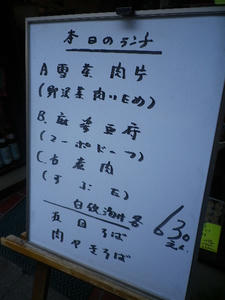 本日のランチ
A 雪菜肉片
(野沢菜肉いため)
B. 麻婆豆腐
(マーボドーフ)
C. 古老肉
(すぶた)
五目そば
肉やきそば
630